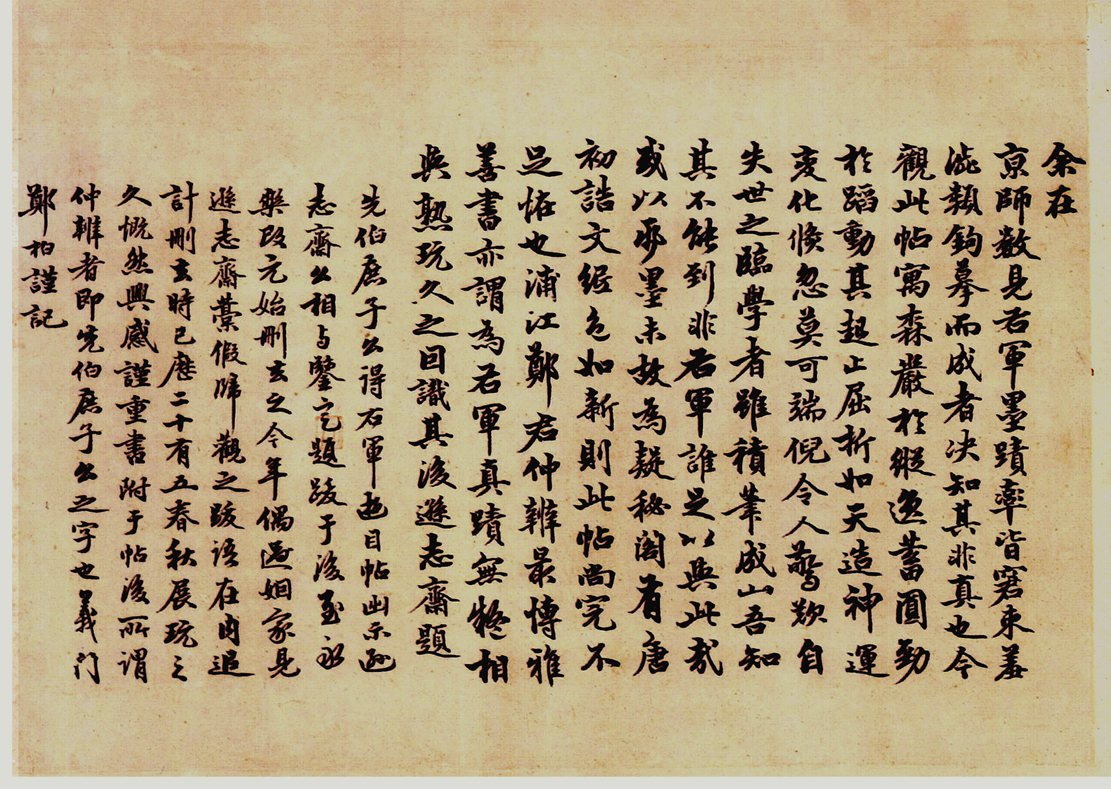 余在
京師數見右軍墨蹟率皆窘束羞
澁類鉤摹而成者决知其非真也今
觀此帖寓森嚴於縱逸蓄圓勁
於蹈動其起止屈折如天造神運
變化倏忽莫可端倪令人驚歎自
失世之臨學者雖積筆成山吾知
其不能到非右軍誰足以與此哉
或以券墨未故為疑秘閣有唐
初誥文紙色如新則此帖尚完不
足恠也浦江鄭君仲辨最博雅
善書亦謂為右軍真蹟無疑相
與熟玩久之因識其後遜志齋題
先伯庶子公得右軍遊目帖出示遜
志齋公相与鑒定題跋于後至永
樂改元始刪去之今年偶過姻家見
遜志齋藁假歸觀之跋語在内追
計刪去時已歷二十有五春秋展玩之
久慨然興感謹重書附于帖後所謂
仲辨者即先伯庶子公之字也義门
鄭柏謹記